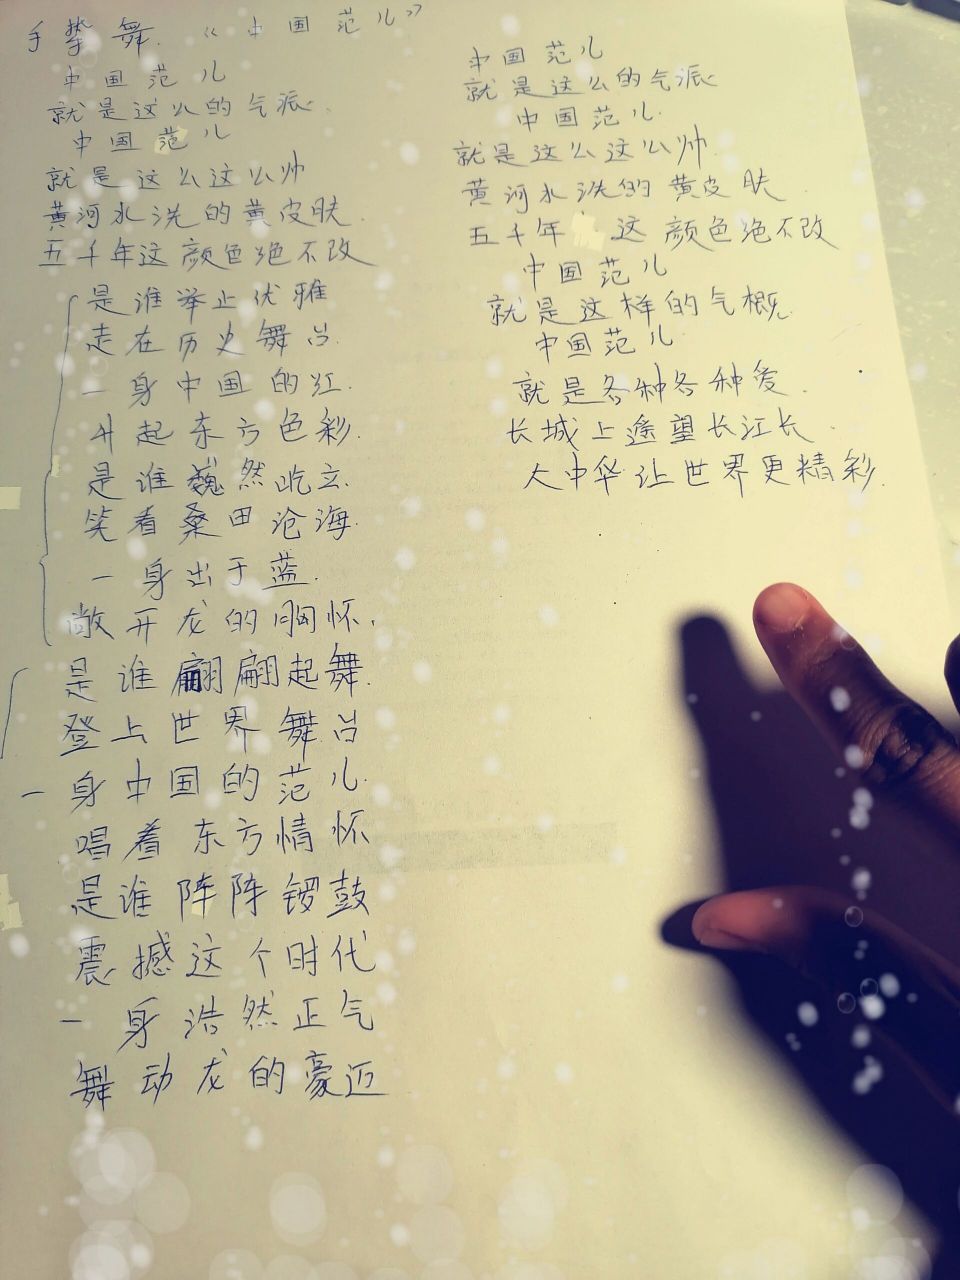 手掌舞《中国范儿》
中国范儿
就是这么的气派
中国范儿
就是这么这么帅
黄河水洗的黄皮肤
五千年这颜色绝不改
是谁举止优雅
走在历史舞台
一身中国的红
升起东方色彩
是谁巍然屹立
笑看桑田沧海
一身出于蓝
敞开龙的胸怀
是谁翩翩起舞
登上世界舞台
一身中国的范儿
唱着东方情怀
是谁阵阵锣鼓
震撼这个时代
一身浩然正气
舞动龙的豪迈
中国范儿
就是这么的气派
中国范儿
就是这么这么帅
黄河水洗的黄皮肤
五千年这颜色绝不改
中国范儿
就是这样的气概
中国范儿
就是各种各种爱
长城上遥望长江长
大中华让世界更精彩